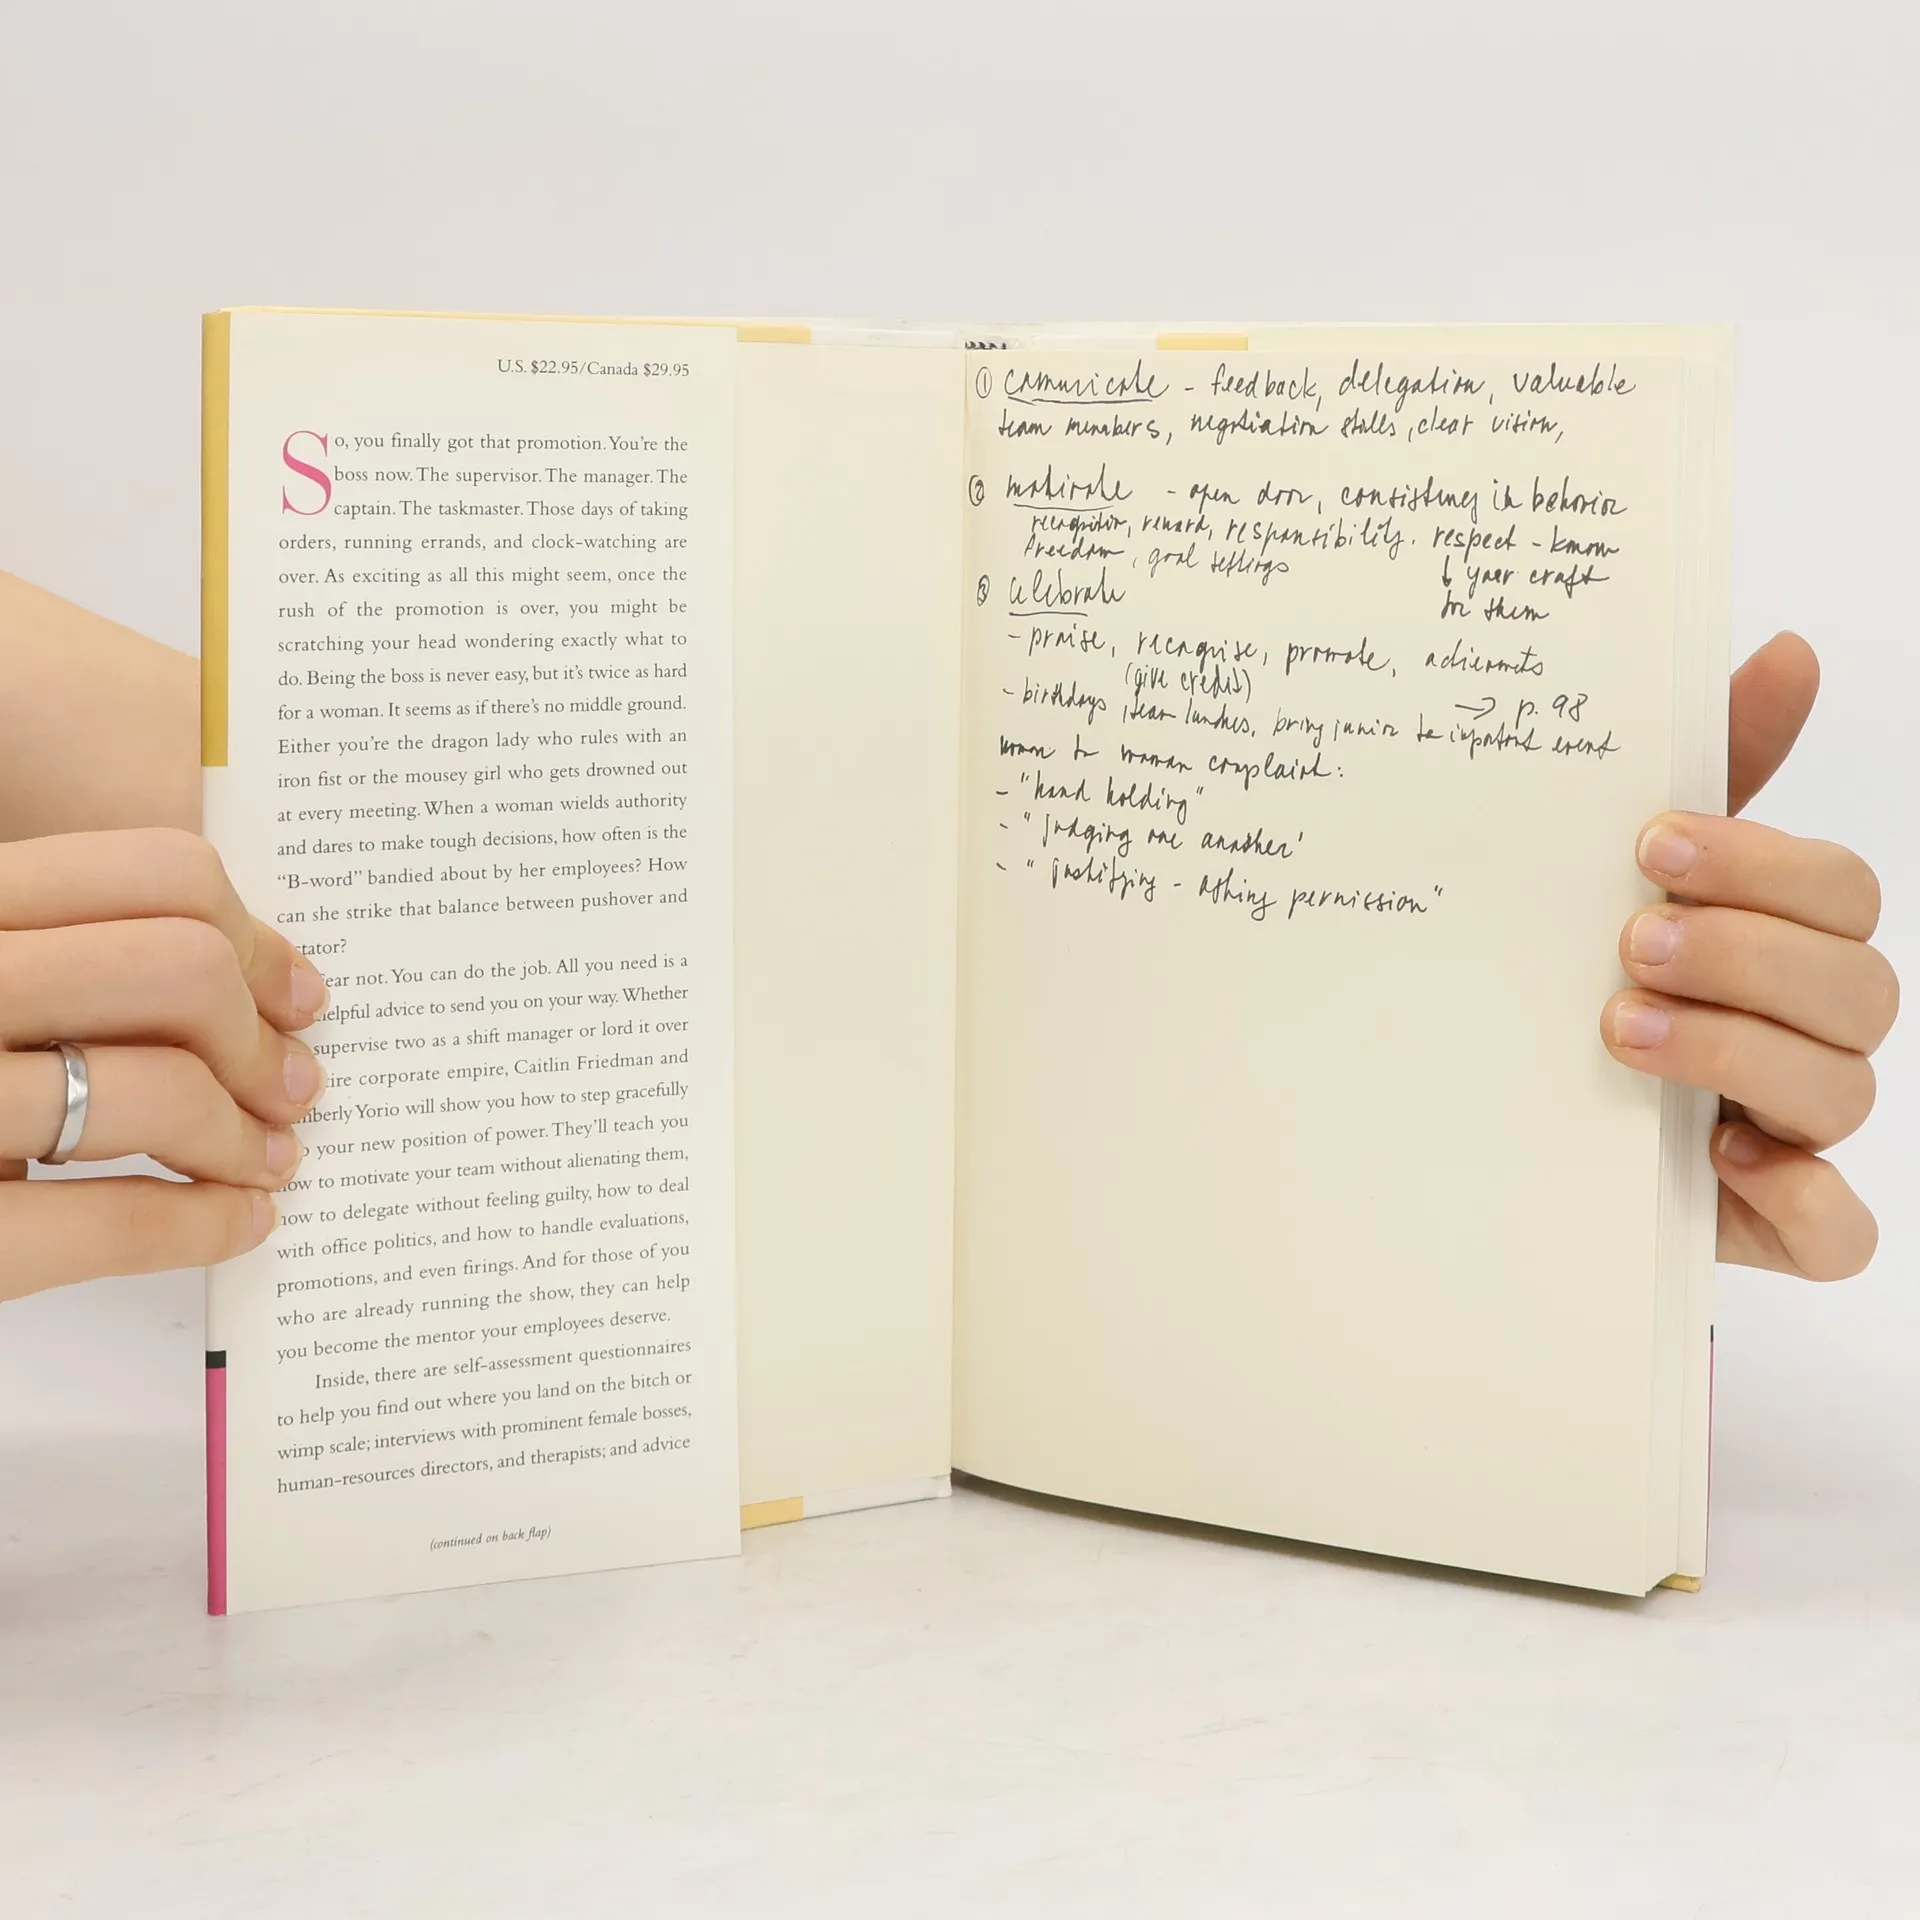 U.S. $22.95/Canada $29.95
So, you finally got that promotion. You're the
boss now. The supervisor. The manager. The
captain. The taskmaster. Those days of taking
orders, running errands, and clock-watching are
over. As exciting as all this might seem, once the
rush of the promotion is over, you might be
scratching your head wondering exactly what to
do. Being the boss is never easy, but it's twice as hard
for a woman. It seems as if there's no middle ground.
Either you're the dragon lady who rules with an
iron fist or the mousey girl who gets drowned out
at every meeting. When a woman wields authority
and dares to make tough decisions, how often is the
"B-word" bandied about by her employees? How
can she strike that balance between pushover and
tator?
ear not. You can do the job. All you need is a
elpful advice to send you on your way. Whether
supervise two as a shift manager or lord it over
tire corporate empire, Caitlin Friedman and
mberly Yorio will show you how to step gracefully
o your new position of power. They'll teach you
how to motivate your team without alienating them,
how to delegate without feeling guilty, how to deal
with office politics, and how to handle evaluations,
promotions, and even firings. And for those of you
who are already running the show, they can help
you become the mentor your employees deserve.
Inside, there are self-assessment questionnaires
to help you find out where you land on the bitch or
wimp scale; interviews with prominent female bosses,
human-resources directors, and therapists; and advice
(continued on back flap)
① comunicate - feedback, delegation, valuable
team members, negotiation skills, clear vision,
② motivate - open door, consistency in behavior
recognition, reward, responsibility. respect - know
freedom, goal settings ↓ your craft
③ celebrate for them
- praise, recognise, promote,
(give credit) → p. 98
- birthdays, team lunches, bring junior to important event
woman to woman complaint:
- "hand holding"
- "judging one another'
- "justifying - asking permission"